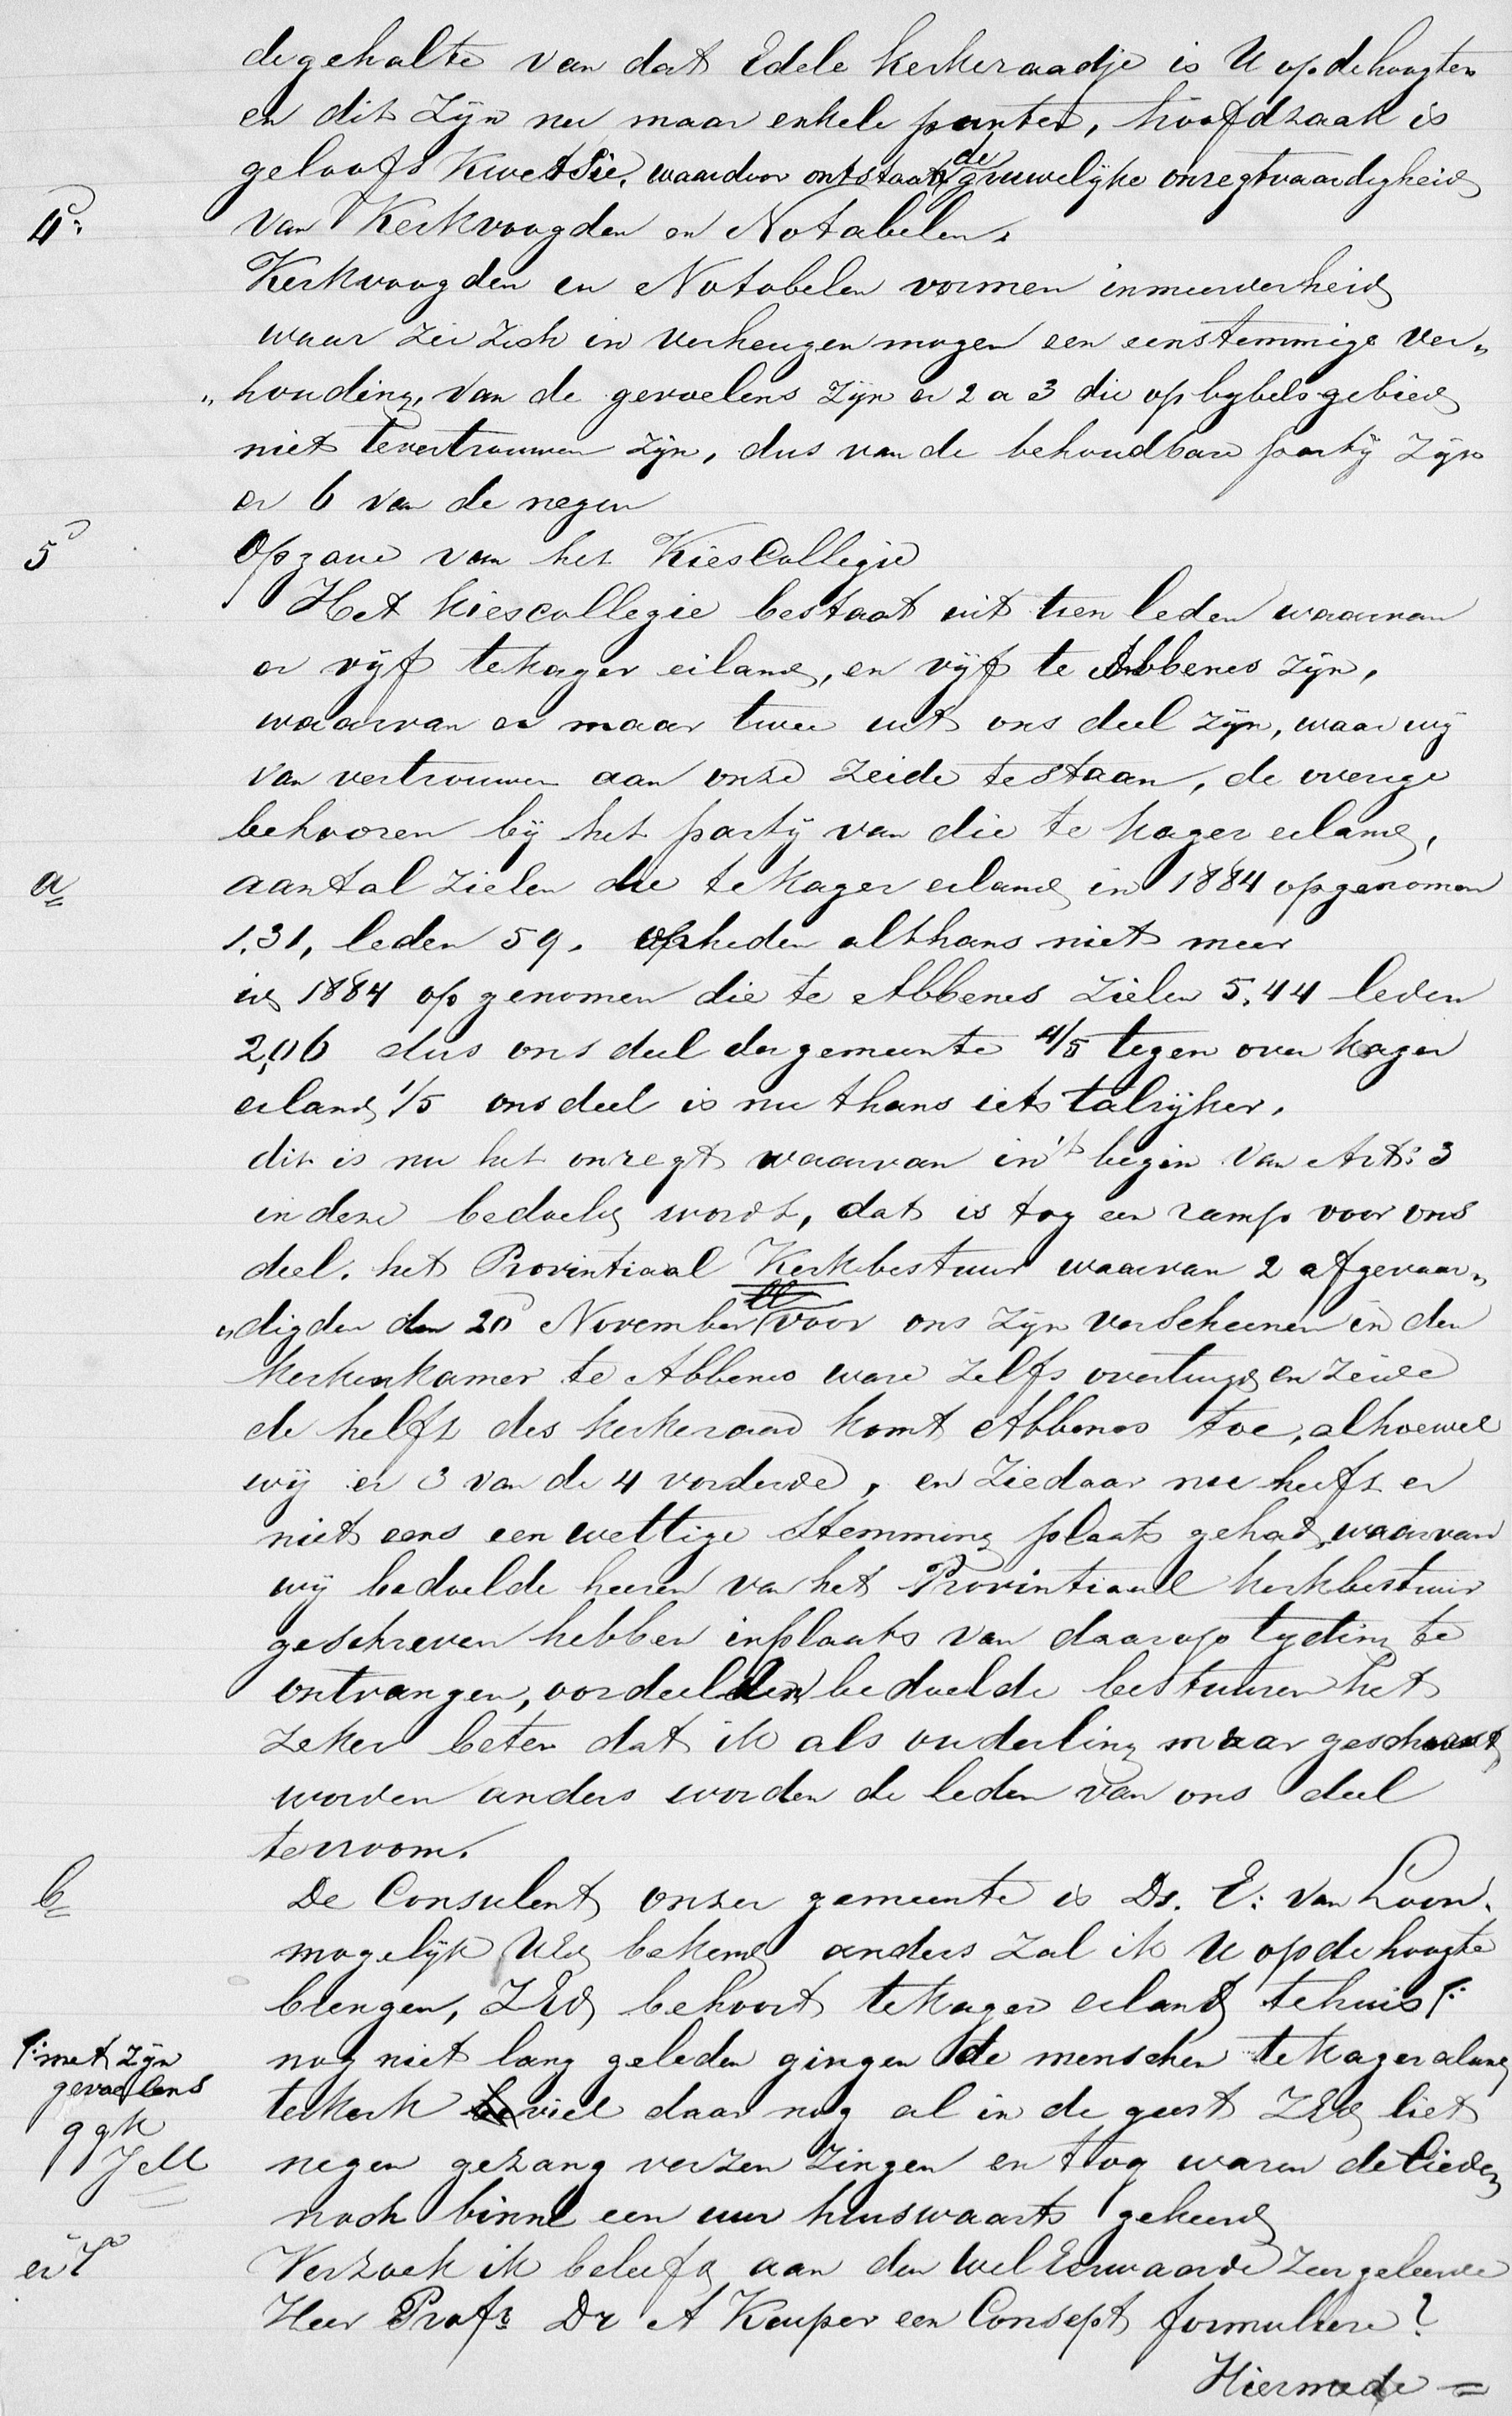 degehalte van dat Edele kerkeraadje is U opdehoogten
en dit Zijn nu maar enkele punten, hoofdzaak is
geloofs Kwetsie, waardoor ontstaat de gruwelijke onregtvaardigheid
4o. van Kerkvoogden en Notabelen.
Kerkvoogden en Notabelen vormen inmeerderheid
waar zei Zich in verheugen mogen een eenstemmige ver„
„houding, van de gevoelens Zijn er 2 a 3 die op bybels gebied
niet tevertrouwen zijn, dus van de behoudbare partij Zijn
er 6 van de negen
5o Opgave van het KiesCollegie
Het kiescollegie bestaat uit tien leden waarvan
er vijf tekager eiland, en vijf te Abbenes zijn,
waarvan er maar twee uit ons deel zijn, waar wij
van vertrouwen aan onze Zeide testaan, de overige
behooren bij het partij van die te kager eiland,
a aantal zielen die te Kager eiland in 1884 opgenomen
1.31, leden 59. opheden althans niet meer
in 1884 op genomen die te Abbenes Zielen 5.44 leden
2,06 dus ons deel der gemeente 4/5 tegen over kager
eiland 1/5 ons deel is nu thans iets talrijker.
dit is nu het onregt waarvan in't begin van Art: 3
in deze bedoeld wordt, dat is tog een ramp voor ons
deel. het Provintiaal Kerkbestuur waarvan 2 afgevaar„
„digden den 20 November voor ons zijn verscheenen in den
kerkenkamer te Abbenes ware zelfs overtuigd en zeide
de helft des kerkeraad komt Abbenes toe, alhoewel
wij er 3 van de 4 vorderde, en Ziedaar nu heeft er
niet eens een wettige Stemming plaats gehad, waarvan
wij bedoelde heeren van het Provintiaal kerkbestuur
geschreven hebben inplaats van daarop tyding te
ontvangen, oordeelden bedoelde bestuuren het
zeker beter dat ik als ouderling maar geschorst
worden anders worden de leden van ons deel
tevroom.
b De Consulent onzer gemeente is Ds. E: van Loon.
mogelijk UEd bekend anders zal ik U opde hoogte
brengen, ZEd behoort tekager eiland tehuis /:
/: met zijn gevoelens
ggk
nog niet lang geleden gingen de menschen tekager eland
terkerk viel daar nog al in de geest ZEd liet
negen gezang verzen zingen en tog waren delieden
noch binne een uur huiswaarts gekeerd
Verzoek ik beleefd aan den wel Eerwaarde Zeergeleerde
Heer Profr Dr A Kuyper een Consept formuliere?
Hiermede =